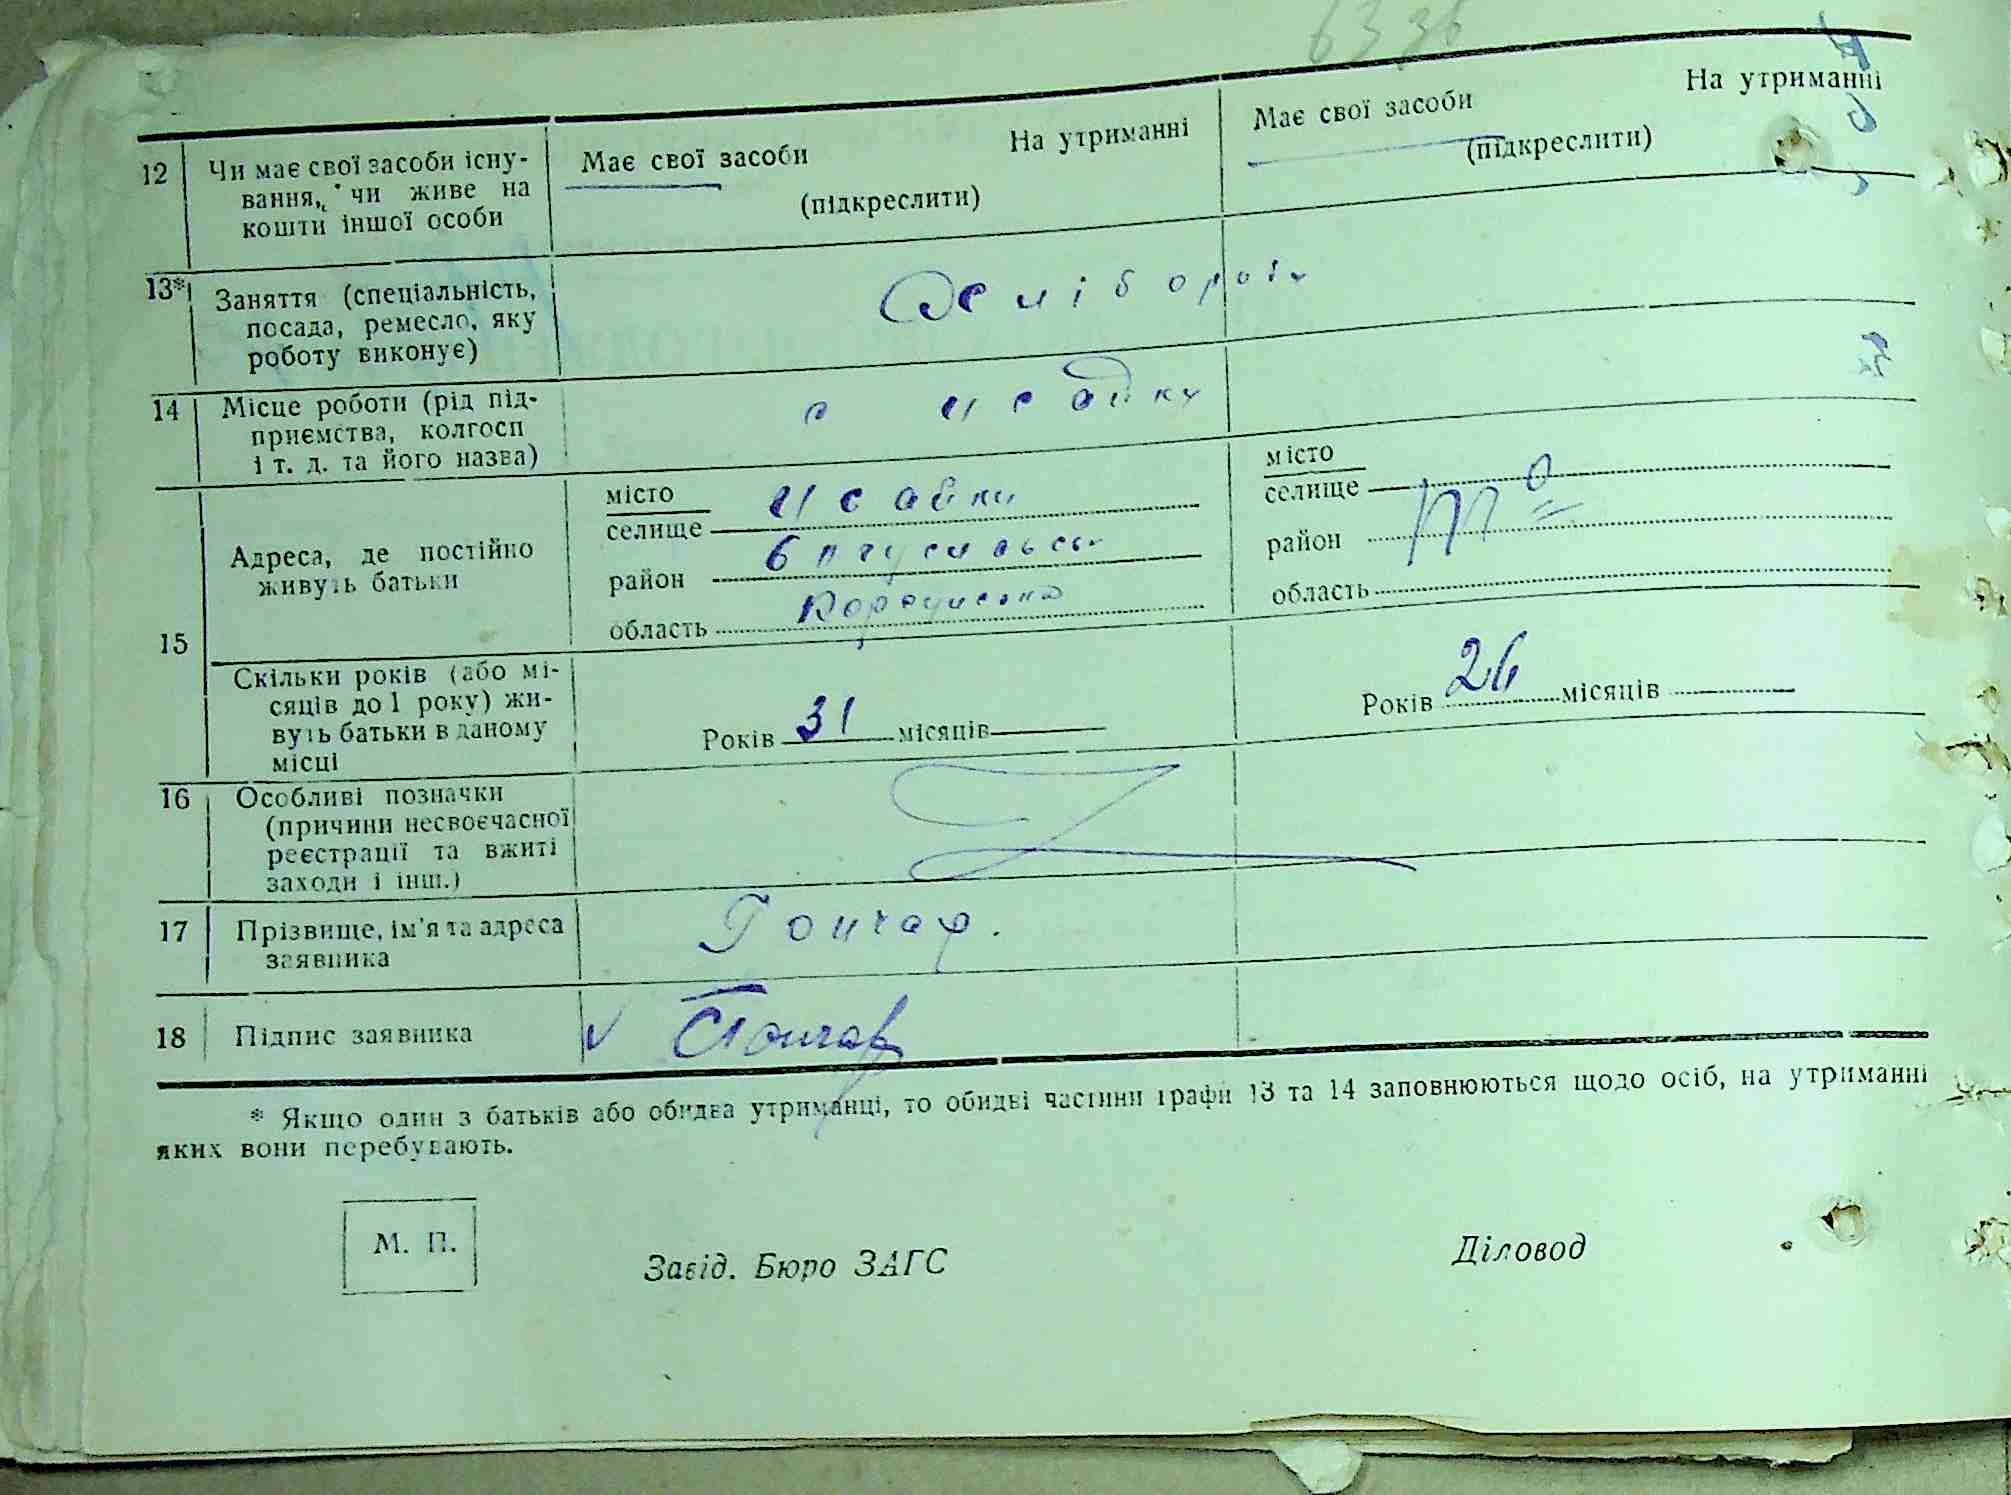 63 зв
12 Чи має свої засоби існу-
вання, чи живе на
кошти іншої особи
Має свої засоби На утриманні
(підкреслити)
Має свої засоби На утриманні
(підкреслити)
13* Заняття (спеціальність,
посада, ремесло, яку
роботу виконує)
Хлібороби
14 Місце роботи (рід під-
приємства, колгосп
і т. д. та його назва)
с Исайки
15 Адреса, де постійно
живуть батьки
місто
селище Исайки
район
область
місто
селище
район
область
Скільки років (або мі-
сяців до 1 року) жи-
вуть батьки в даному
місці
Років 31 місяців
Років 26 місяців
16 Особливі позначки
(причини несвоєчасної
реєстрації та вжиті
заходи і інш.)
17 Прізвище, ім'я та адреса
заявника
Гончар.
18 Підпис заявника
Гончар
* Якщо один з батьків або обидва утриманці, то обидві частини графи 13 та 14 заповнюються щодо осіб, на утриманні
яких вони перебувають.
М. П.
Завід. Бюро ЗАГС
Діловод